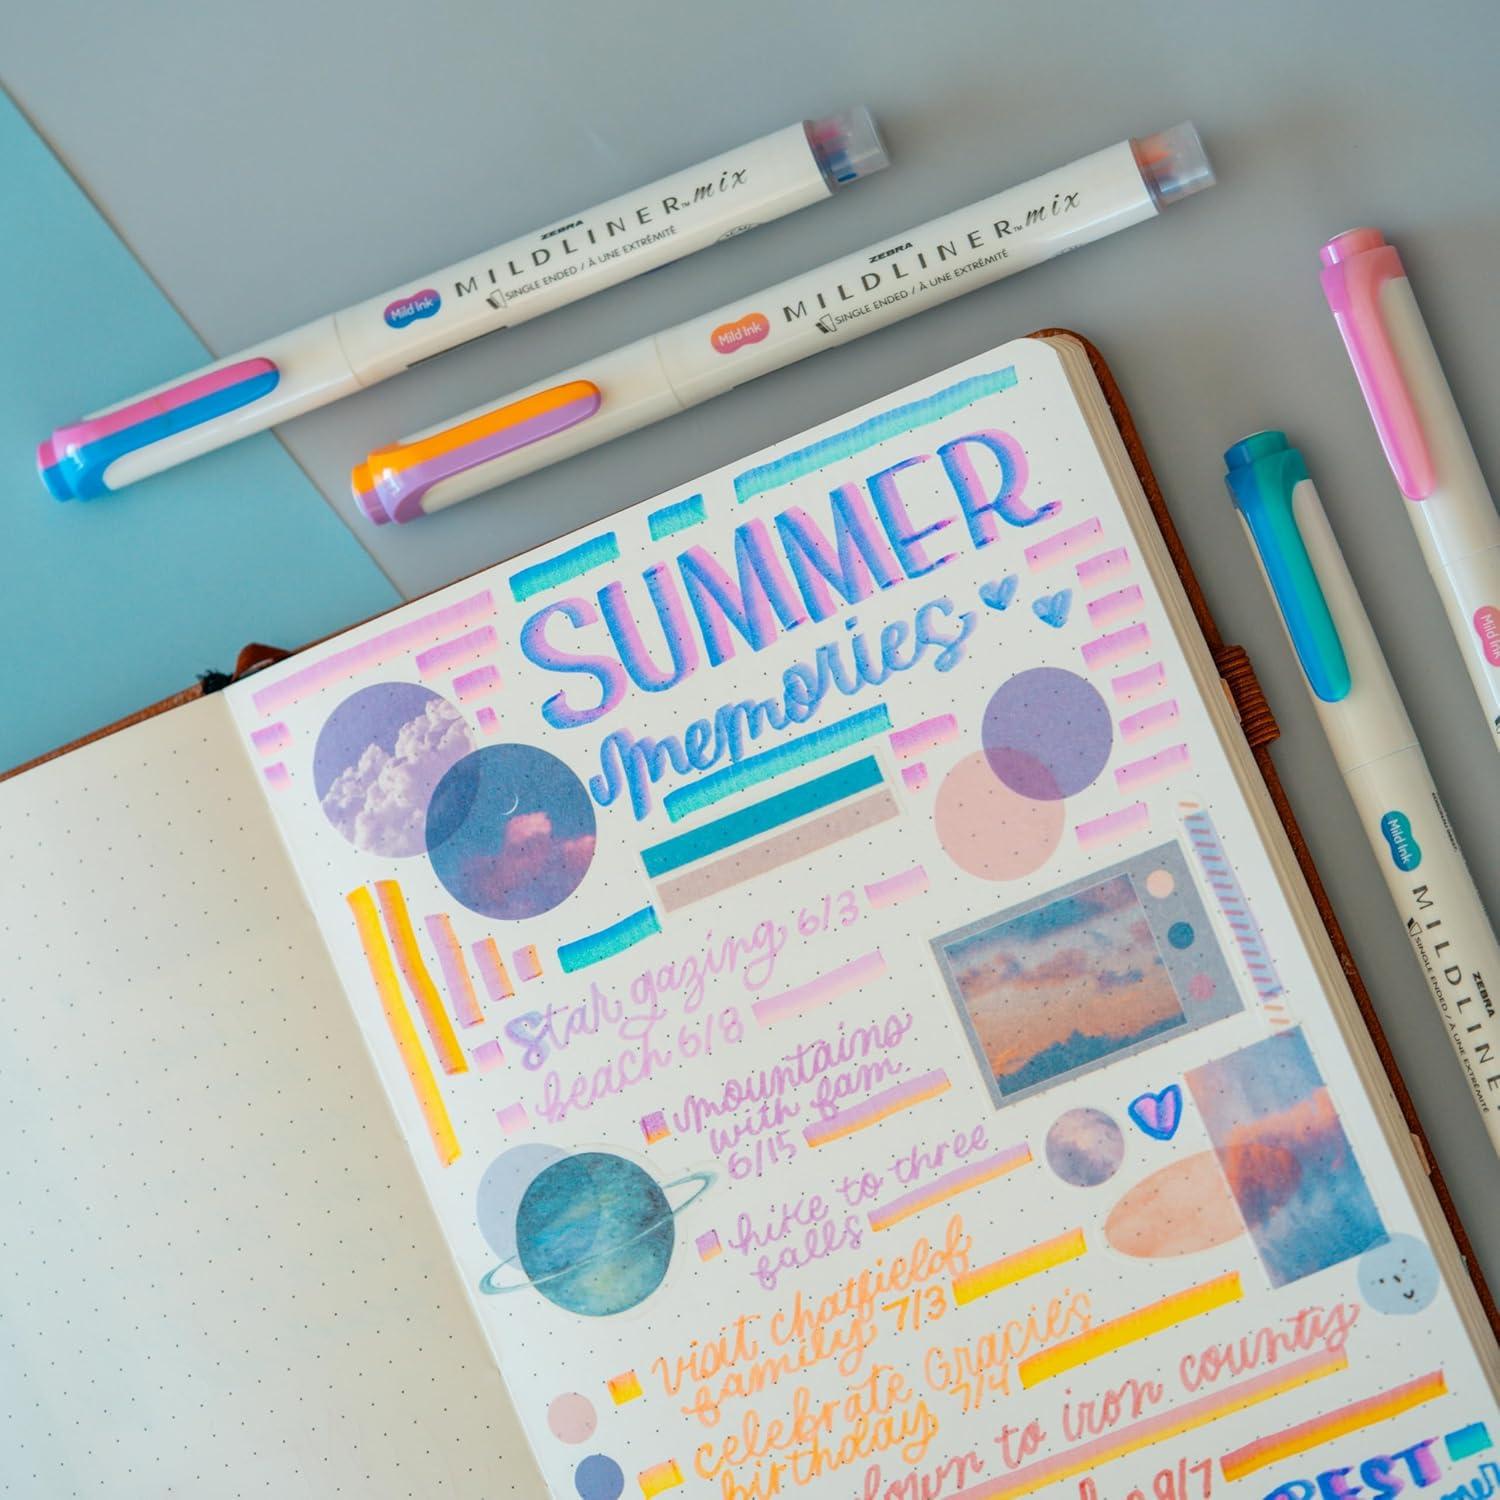 ZEBRA
MILDLINER™ mix
Mild Ink
SINGLE ENDED / À UNE EXTRÉMITÉ
ZEBRA
MILDLINER™ mix
Mild Ink
SINGLE ENDED / À UNE EXTRÉMITÉ
Mild Ink
Mild Ink
ZEBRA
SINGLE ENDED / À UNE EXTRÉMITÉ
SUMMER
memories
Star gazing 6/3
beach 6/8
mountains
with fam
6/15
hike to three
falls
visit chatfield
family 7/3
celebrate Gracie's
birthday 7/4
down to iron county
9/7
BEST